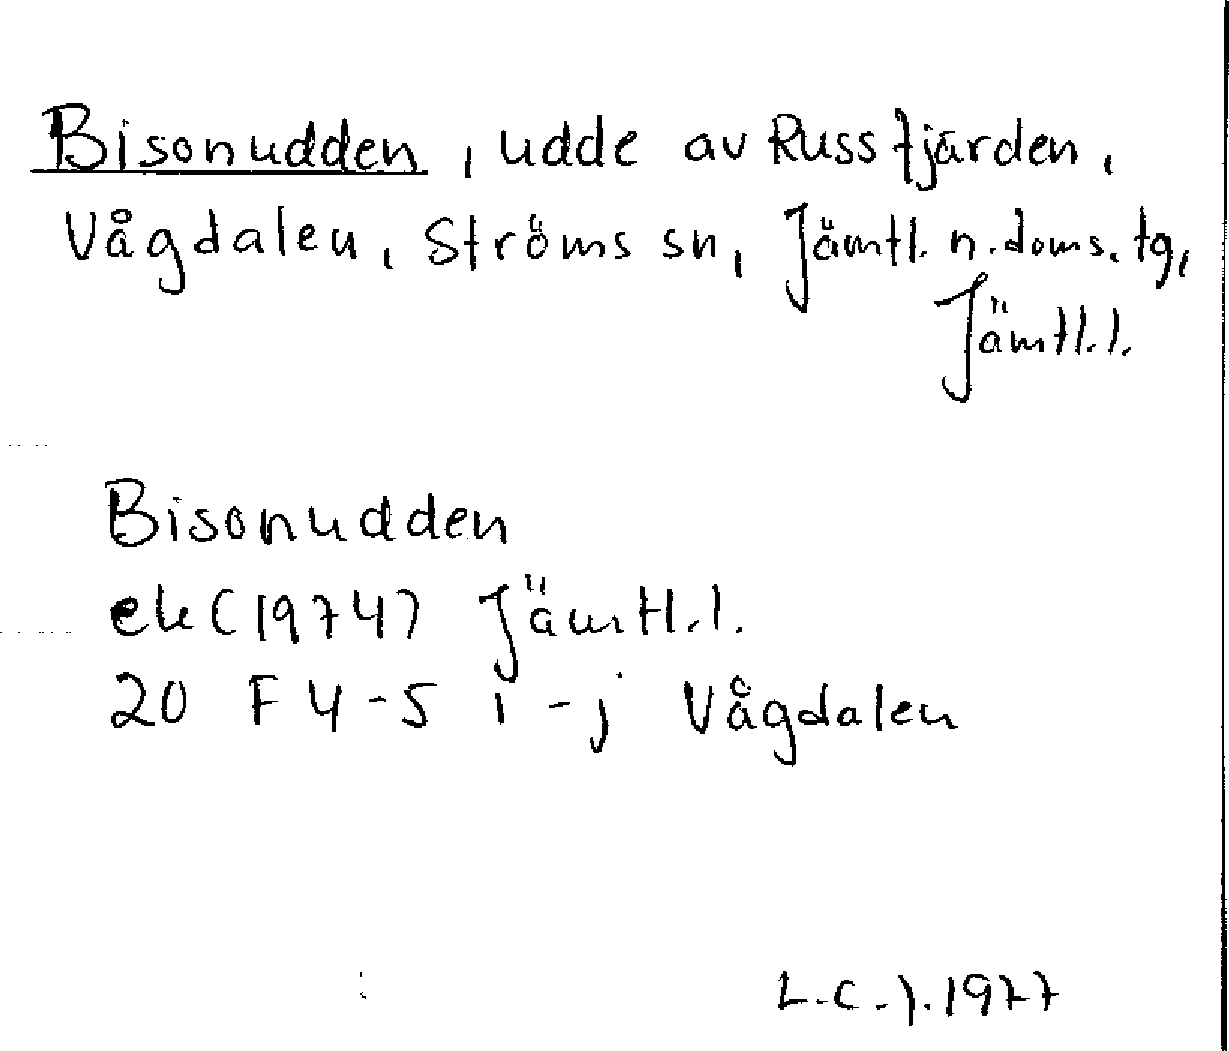 Bisonudden, udde av Russfjärden,
Vågdalen, Ströms sn, Jämtl. n. doms. tg,
Jämtl. l.
Bisonudden
ek (1974) Jämtl. l.
20 F 4-5 i-j Vågdalen
L.C.J. 1977